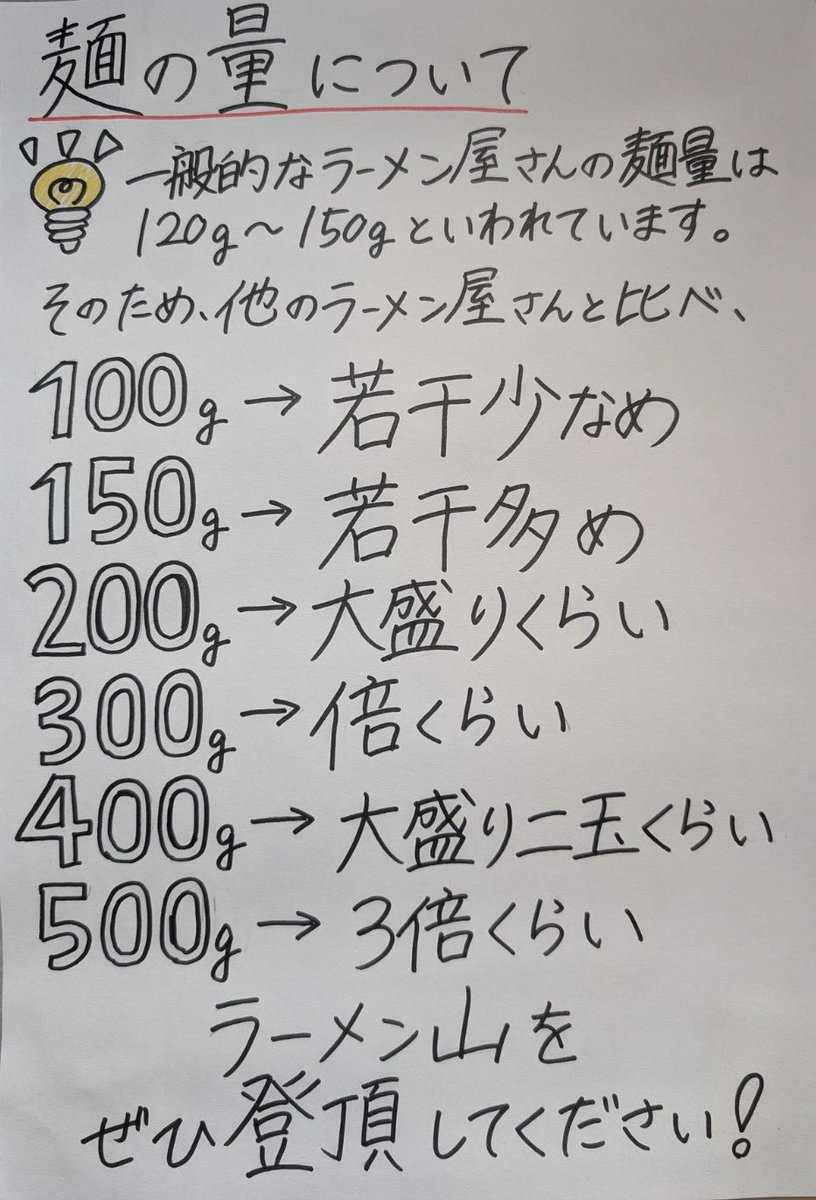 麺の量について
一般的なラーメン屋さんの麺量は
120g〜150gといわれています。
そのため、他のラーメン屋さんと比べ、
100g→若干少なめ
150g→若干多め
200g→大盛りくらい
300g→倍くらい
400g→大盛り二玉くらい
500g→3倍くらい
ラーメン山を
ぜひ登頂してください!